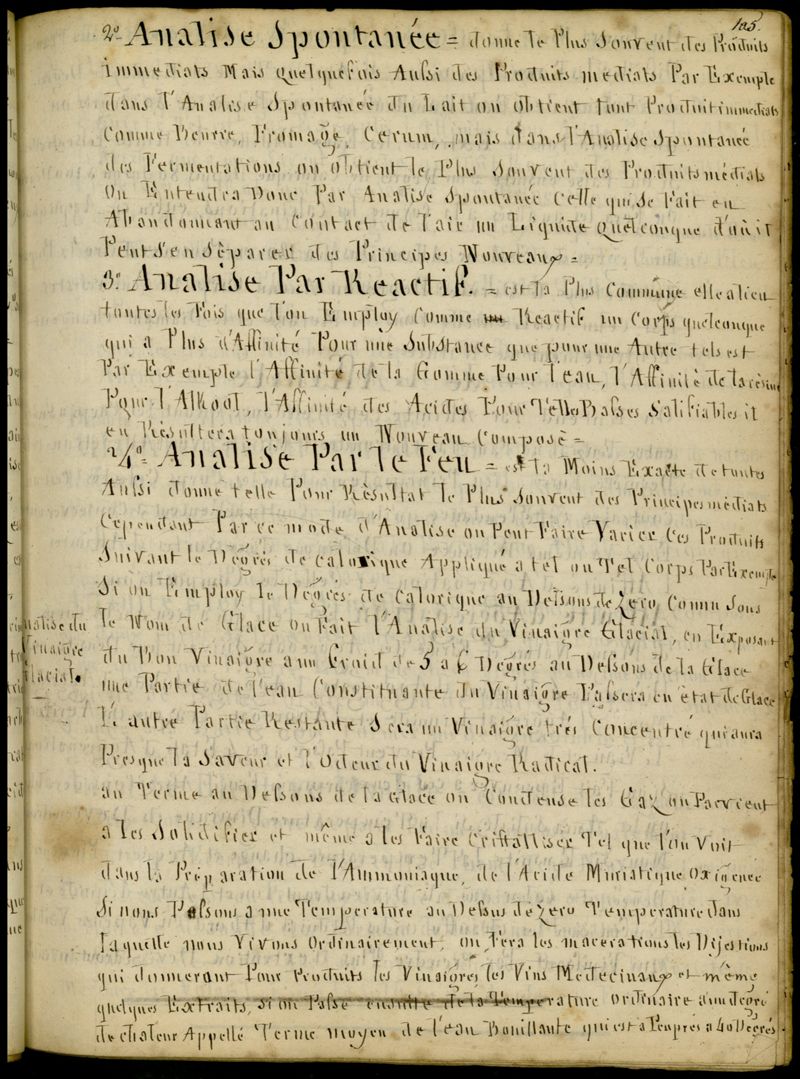 105.
2º Analise Spontanée = donne le Plus Souvent des Produits
immediats Mais quelquefois Aussi des Produits mediats Par Exemple
dans l'Analise Spontanée du Lait on obtient tout Produit immediats
Comme Beurre, Fromage, Cerum, mais dans l'Analise Spontanée
des Fermentations on obtient le Plus Souvent des Produits médiats
On Entendra Donc Par Analise Spontanée Celle qui Se Fait en
Abandonnant au Contact de l'air un Liquide quelconque d'où il
Peut S'en Séparer des Principes Nouveaux =
3º Analise Par Reactif. = est la Plus Commune elle a lieu
toutes les Fois que l'on Employ Comme Reactif un Corps quelconque
qui a Plus d'Affinité Pour une Substance que pour une Autre tels est
Par Exemple l'Affinité de la Gomme Pour l'eau, l'Affinité de la résine
Pour l'Alkool, l'Affinité des Acides Pour Telle Basses Salifiables il
en Résultera toujours un Nouveau Composé =
4º Analise Par le Feu = est la Moins Exacte de toutes
Aussi donne telle Pour Résultat le Plus Souvent des Principes médiats
Cependant Par ce mode d'Analise on Peut Faire Varier Ces Produits
Suivant le Degrés de Calorique Appliqué a tel ou Tel Corps Par Exemple
Si on Employ le Degrés de Calorique au Dessous de Zero, Connu Sous
le Nom de Glace on Fait l'Analise du Vinaigre Glacial, en Exposant
du Bon Vinaigre a un Froid de 5 a 6 Degrés au Dessous de la Glace
une Partie de l'eau Constituante du Vinaigre Passera en état de Glace
L'autre Partie Restante Sera un Vinaigre très Concentré qui aura
Presque la Saveur et l'Odeur du Vinaigre Radical.
au Terme au Dessous de la Glace on Condense les Gaz, on Parvient
a les Solidifier et même a les Faire Cristalliser Tel que l'on Voit
dans la Préparation de l'Ammoniaque, de l'Acide Muriatique Oxigenée
Si nous Passons a une Temperature au Dessus de Zero Temperature dans
laquelle nous Vivons Ordinairement, on Fera les macerations les Dijestions
qui donneront Pour Produits les Vinaigres, les Vins Médecinaux et même
quelques Extraits, si on Passe ensuite de la Temperature Ordinaire a un degré
de chaleur Appellé Terme moyen de l'eau Bouillante qui est a Peu pres a 40 Degrés
Analise du
Vinaigre
Glacial.